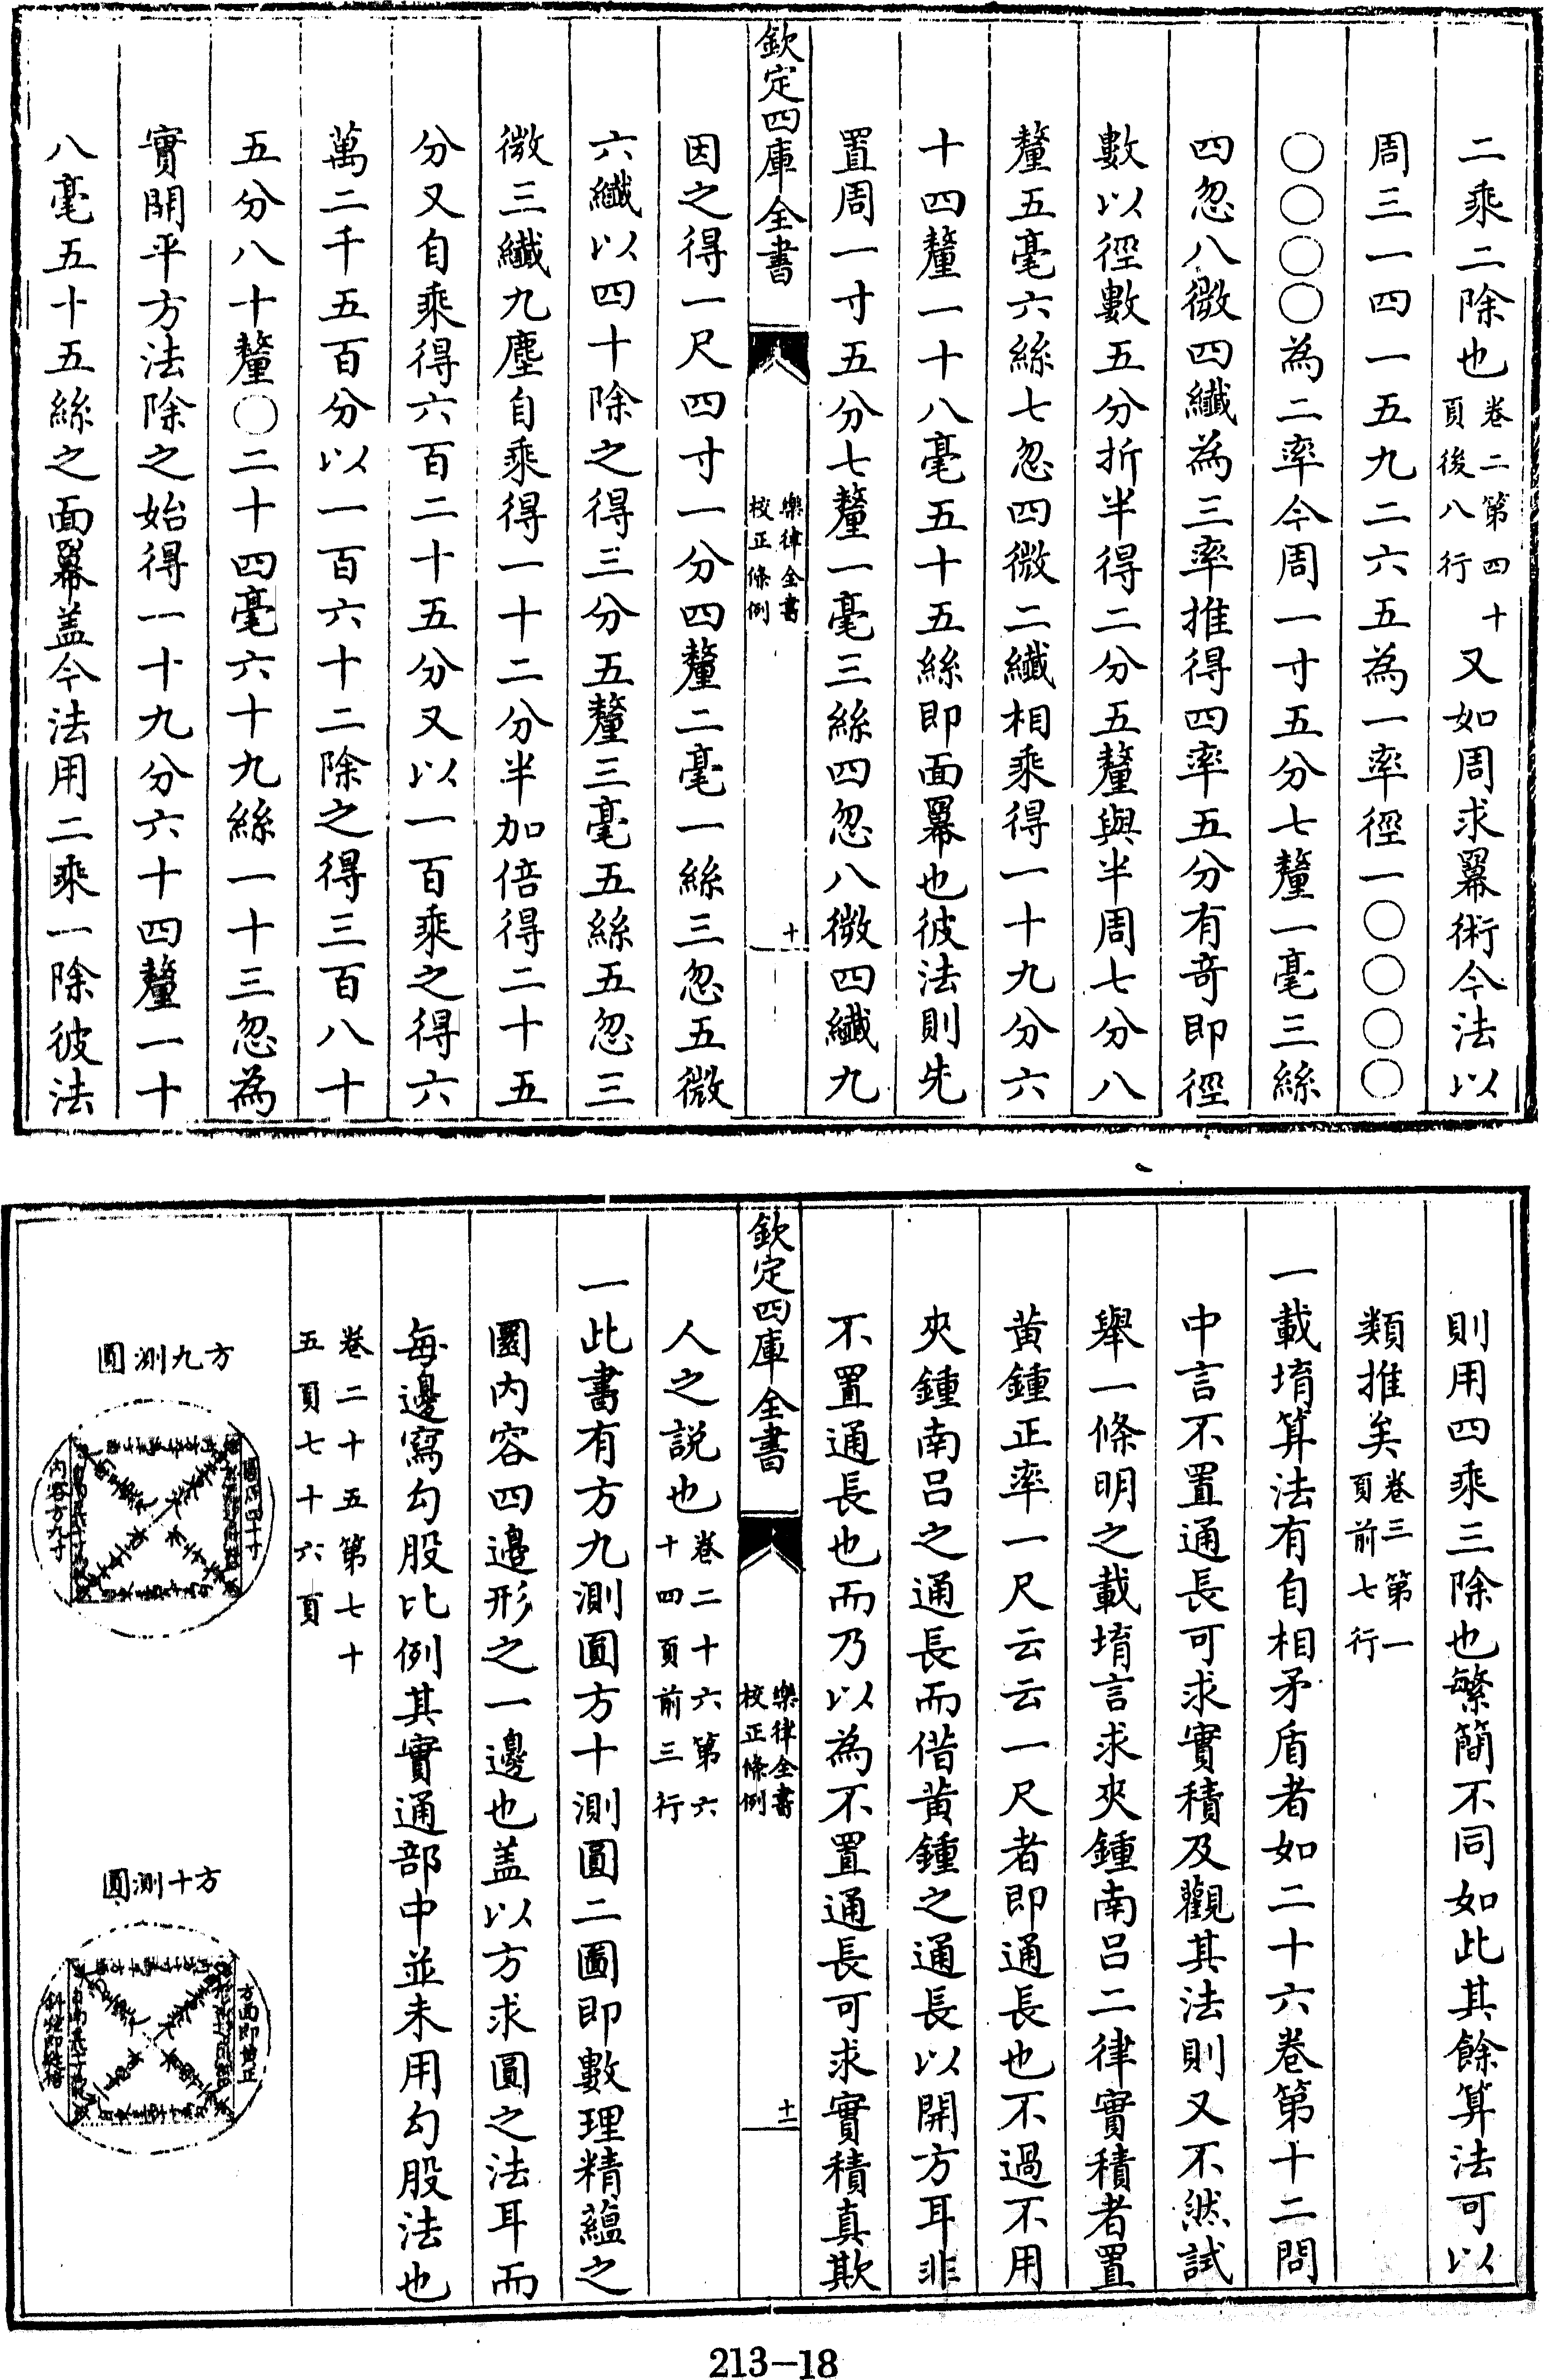 二乘二除也卷二第四十頁後八行又如周求羃術今法以
周三一四一五九二六五為一率徑一〇〇〇〇
〇〇〇〇為二率今周一寸五分七釐一毫三絲
四忽八微四纖為三率推得四率五分有奇即徑
數以徑數五分折半得二分五釐與半周七分八
釐五毫六絲七忽四微二纖相乘得一十九分六
十四釐一十八毫五十五絲即面羃也彼法則先
置周一寸五分七釐一毫三絲四忽八微四纖九
欽定四庫全書
樂律全書校正條例
十
因之得一尺四寸一分四釐二毫一絲三忽五微
六纖以四十除之得三分五釐三毫五絲五忽三
微三纖九塵自乘得一十二分半加倍得二十五
分又自乘得六百二十五分又以一百乘之得六
萬二千五百分以一百六十二除之得三百八十
五分八十釐〇二十四毫六十九絲一十三忽為
實開平方法除之始得一十九分六十四釐一十
八毫五十五絲之面羃盖今法用二乘一除彼法
則用四乘三除也繁簡不同如此其餘算法可以
類推矣卷三第一頁前七行
一載堉算法有自相矛盾者如二十六卷第十二問
中言不置通長可求實積及觀其法則又不然試
舉一條明之載堉言求夾鍾南呂二律實積者置
黃鍾正率一尺云云一尺者即通長也不過不用
夾鍾南呂之通長而借黃鍾之通長以開方耳非
不置通長也而乃以為不置通長可求實積真欺
欽定四庫全書
樂律全書校正條例
十一
人之説也卷二十六第六十四頁前三行
一此書有方九測圓方十測圓二圖即數理精蘊之
圜内容四邉形之一邊也盖以方求圓之法耳而
每邊寫勾股比例其實通部中並未用勾股法也
卷二十五第七十五頁七十六頁
方九測圓
圓周四十寸
内容方九寸
方十測圓
213—18